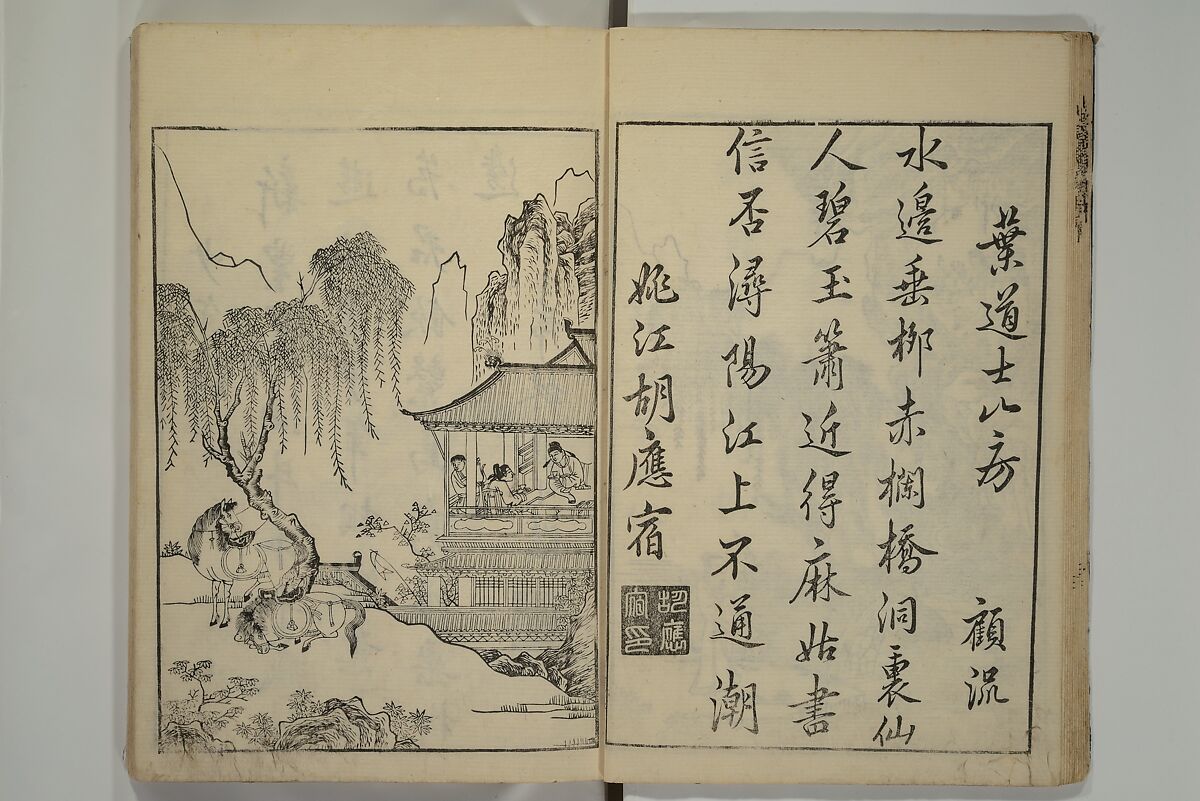 葉道士山房　顧況
水邊垂柳赤欄橋洞裏仙
人碧玉簫近得麻姑書
信否潯陽江上不通潮
姚江胡應宿
胡應
宿印